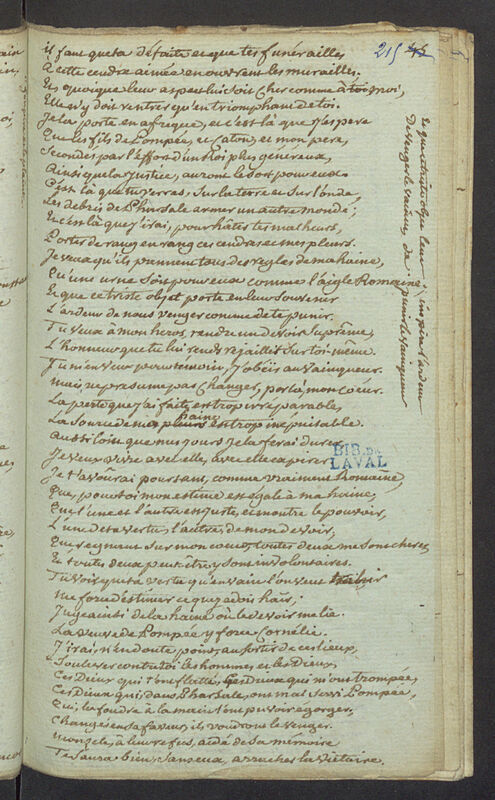 215
il faut que ta défaite et que tes funérailles
à cette cendre aimée en ouvrent les murailles.
Et quoique leur aspect lui soit cher comme à moi,
Elle n'y doit rentrer qu'en triomphant de toi.
Je la porte en afrique, et c'est là que j'espère
Que les fils de Pompée, et Caton, et mon père,
Secondés par l'effort d'un Roi plus généreux,
Ainsi que la justice, auront le sort pour eux.
C'est là que tu verras, sur la terre et sur l'onde,
Les débris de Pharsale armer un autre monde;
Et c'est là que j'irai, pour hâter tes malheurs,
Porter de rang en rang ces cendres et mes pleurs.
Je veux qu'ils prennent tous des règles de ma haine,
Qu'une urne soit pour eux comme l'aigle Romaine
Et que ce triste objet porte en leur souvenir
L'ardeur de nous venger comme de te punir.
Tu veux à mon héros rendre un devoir suprême,
L'honneur que tu lui rends rejaillit sur toi-même.
Tu m'en veux pour témoin, j'obéis au vainqueur.
mais ne présume pas changer par là mon coeur.
La perte que j'ai faite est trop irréparable,
La source de ma haine est trop inépuisable.
pleurs
aussi loin que mes jours je la ferai durer
Je veux vivre avec elle, avec elle expirer
BIB. DE
LAVAL
Je t'avoûrai pourtant, comme vraiment Romaine,
Que, pour toi mon estime est égale à ma haine,
Que l'une et l'autre est juste, et montre le pouvoir,
L'une de ta vertu, l'autre, de mon devoir,
Que régnant sur mon coeur, toutes deux me sont chères
Et toutes deux peut-être y sont involontaires.
Tu vois que ta vertu qu'en vain l'on veut trahir
Me force d'estimer ce que je dois haïr;
Juge ainsi de la haine où le devoir me lie.
La veuve de Pompée y force Cornélie.
J'irai, n'en doute point, au sortir de ces lieux,
Soulever contre toi les hommes et les Dieux,
Ces Dieux qui t'ont flatté, ces Dieux qui m'ont trompée,
Ces Dieux qui, dans Pharsale, ont mal servi Pompée,
Qui, la foudre à la main l'ont pu voir égorger.
Changés en sa faveur, ils voudront le venger.
Mon zèle, à leur refus, aidé de sa mémoire
Te saura bien, sans eux, arracher la victoire.
Et que ce triste objet leur inspire l'ardeur
De venger le vaincu, de punir le vainqueur